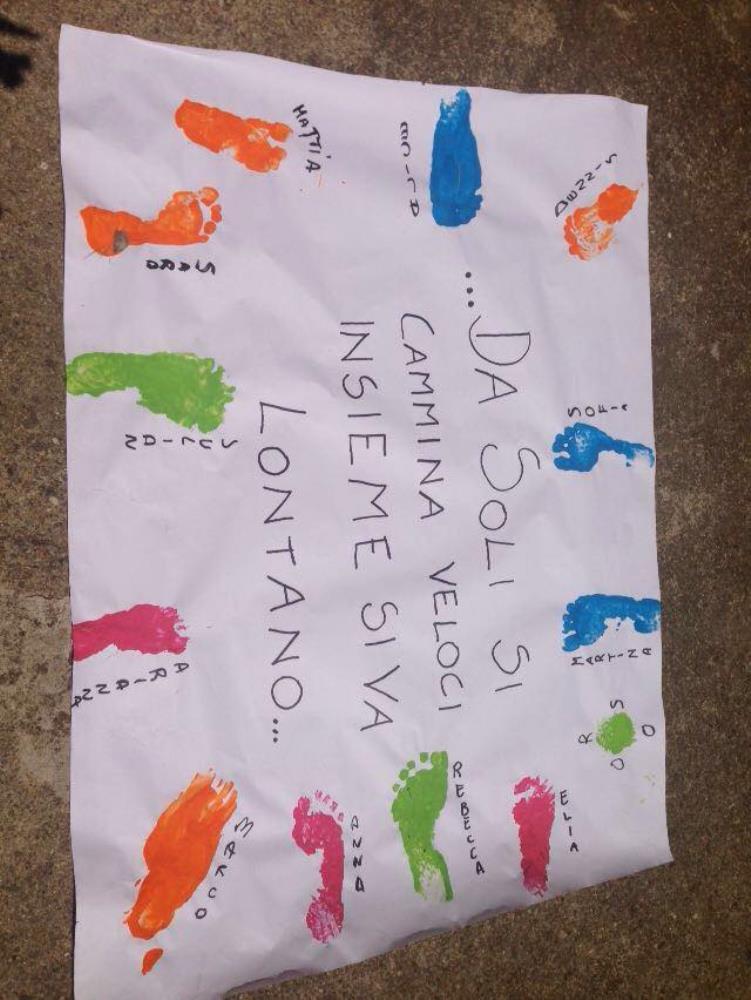 DENNIS
SOFIA
MARTINA
ORSO
...DA SOLI SI
CAMMINA VELOCI
INSIEME SI VA
LONTANO...
ELIA
REBECCA
ANNA
MATTIA
SARA
JULIAN
ARIANNA
MARCO